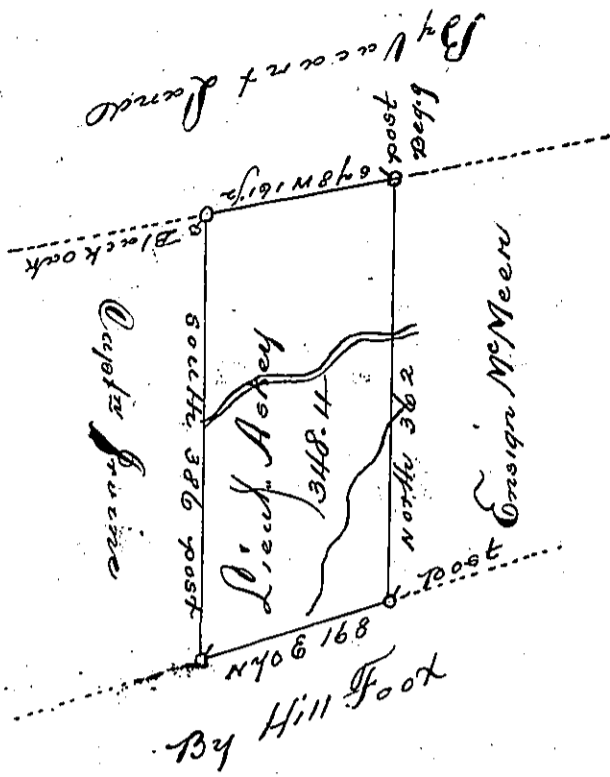 By Vacant Land
post
Beg:g
S78W 161½
Black oak
Captn Irvine
South 386 post
Lieut Askey
348.4
North 362
Ensign McMeen
post
N40E 168
By Hill Foot